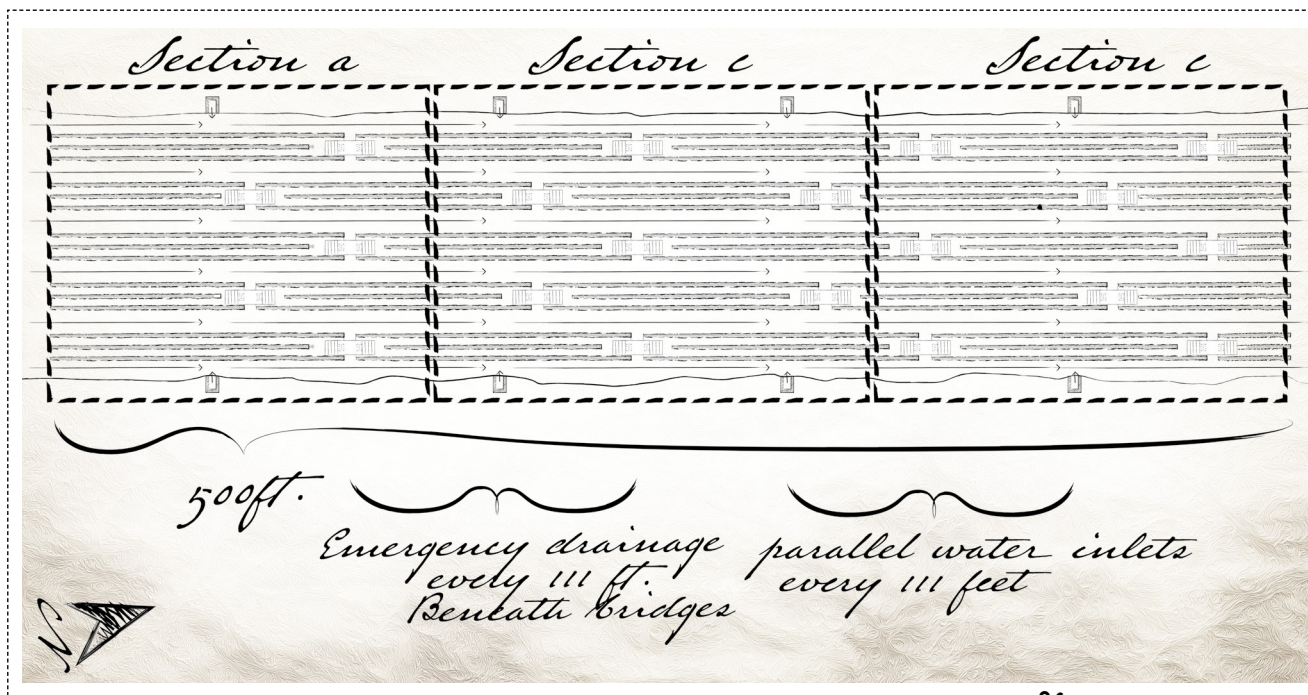 Section a
Section c
Section c
500ft.
Emergency drainage
every 111 ft.
Beneath bridges
parallel water inlets
every 111 feet
N